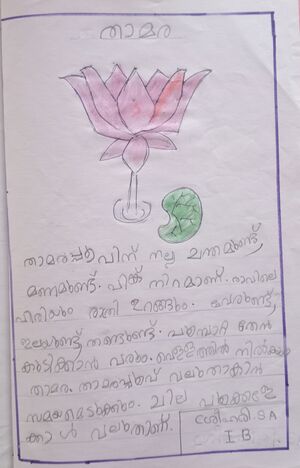 താമര
താമരപ്പൂവിന് നല്ല ചന്തമുണ്ട്,
മണമുണ്ട്. പിങ്ക് നിറമാണ്. രാവിലെ
വിരിയും രാത്രി ഉറങ്ങും. വേരുണ്ട്,
ഇലയുണ്ട് തണ്ടുണ്ട്. പൂമ്പാറ്റ തേൻ
കുടിക്കാൻ വരും. വെള്ളത്തിൽ നിൽക്കും
താമര. താമരപ്പൂവ് വലുതാകാൻ
സമയമെടുക്കും. ചില പൂക്കളേ
ക്കാൾ വലുതാണ്.
ശ്രീഹരി. S A
I B